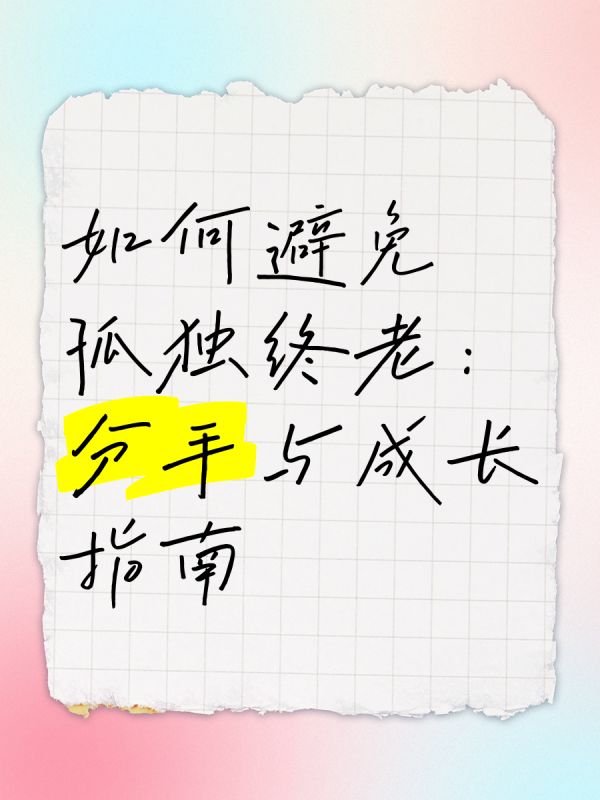 如何避免
孤独终老：
分手与成长
指南